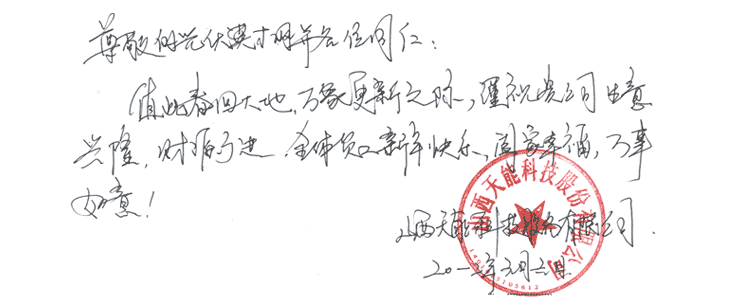 尊敬的光伏英才网并各位同仁：
值此春回大地，万象更新之际，谨祝贵公司生意
兴隆，财源广进，全体员工新年快乐，阖家幸福，万事
如意！
山西天能科技股份有限公司
山西天能科技股份有限公司
二0一二年元月